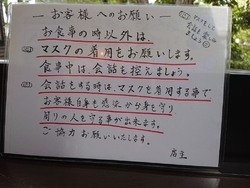 — お客様へのお願い —
お食事の時以外は、
マスクの着用をお願いします。
食事中は、会話を控えましょう。
会話をする時は、マスクを着用する事で
お客様自身も感染から身を守り
周りの人を守る事が出来ます。
ご協力お願いいたします。
店主